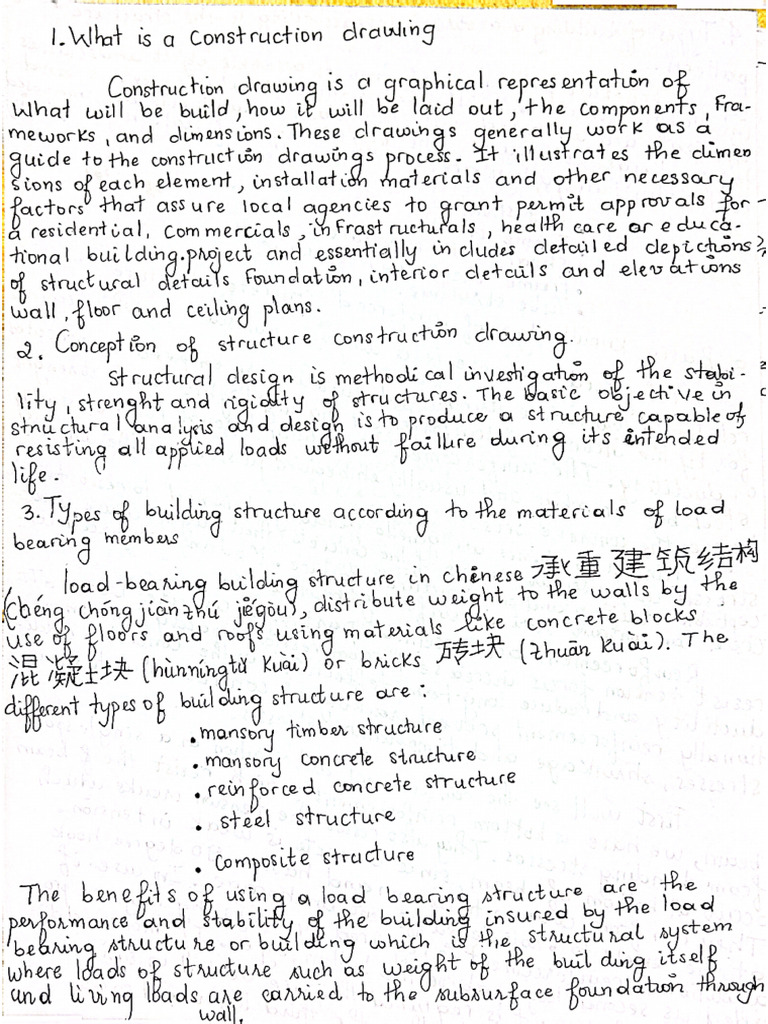 1. What is a Construction drawling
Construction drawing is a graphical representation of
What will be build, how it will be laid out, the components, Fra-
meworks, and dimensions. These drawings generally work as a
guide to the construction drawings process. It illustrates the dimen
sions of each element, installation materials and other necessary
factors that assure local agencies to grant permit approvals for
a residential, commercials, in frastructurals, health care or educa-
tional building.project and essentially includes detailed depictions
of structural details Foundation, interior details and elevations
wall, floor and ceiling plans.
2. Conception of structure construction drawing.
Structural design is methodical investigation of the stabi-
lity, strenght and rigidity of structures. The basic objective in
structural analysis and design is to produce a structure capable of
resisting all applied loads without faillure during its intended
life.
3. Types of building structure according to the materials of load
bearing members
load-bearing building structure in chinese 承重建筑结构
(chéng chóng jiàn zhú jiégòu), distribute weight to the walls by the
use of floors and roofs using materials like concrete blocks
混凝土块 (hùnníngtǔ Kuài) or bricks 砖块 (zhuān kuài). The
different types of building structure are:
• mansory timber structure
• mansory concrete structure
• reinforced concrete structure
• steel structure
• Composite structure
The benefits of using a load bearing structure are the
performance and stability of the building insured by the load
bearing structure or building which is the structural system
where loads of structure such as weight of the building itself
and living loads are carried to the subsurface foundation through
wall.